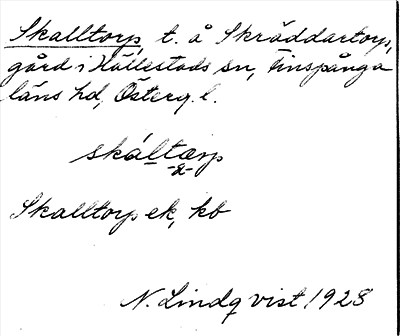 Skalltorp, t. å Skräddartorp,
gård i Hällestads sn, Finspånga
läns hd, Österg. l.
skáltɑrp
-2-
Skalltorp ek, kb
N. Lindqvist 1928